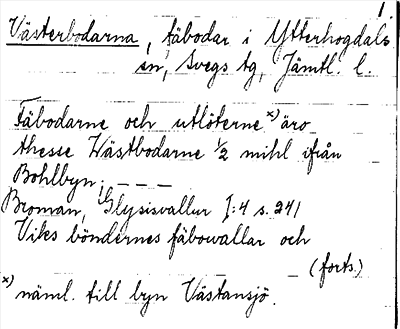 1.
Västerbodarna, fäbodar i Ytterhogdals
sn, Svegs tg, Jämtl. l.
Fäbodarne och utlöterne x) äro
thesse Wästbodarne 1/2 mihl ifrån
Bohlbyn: – – –
Broman, Glysisvallur I:4 s. 241
Viks böndernes fäbowallar och
(forts.)
x) näml. till byn Västansjö.